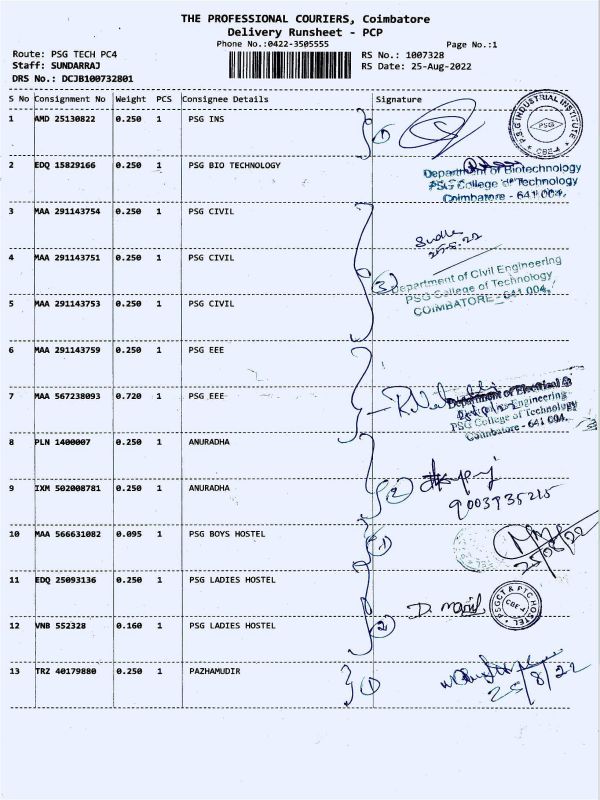 THE PROFESSIONAL COURIERS, Coimbatore
Delivery Runsheet - PCP
Phone No.:0422-3505555 Page No.:1
Route: PSG TECH PC4 RS No.: 1007328
Staff: SUNDARRAJ RS Date: 25-Aug-2022
DRS No.: DCJB100732801
S No Consignment No Weight PCS Consignee Details Signature
1 AMD 25130822 0.250 1 PSG INS 1
P.S.G INDUSTRIAL INSTITUTE PSG CBE-4
2 EDQ 15829166 0.250 1 PSG BIO TECHNOLOGY
Department of Biotechnology
PSG College of Technology
Coimbatore - 641 004.
3 MAA 291143754 0.250 1 PSG CIVIL
Sudha
25-8-22
4 MAA 291143751 0.250 1 PSG CIVIL 3
Department of Civil Engineering
PSG College of Technology
COIMBATORE - 641 004.
5 MAA 291143753 0.250 1 PSG CIVIL
6 MAA 291143759 0.250 1 PSG EEE
7 MAA 567238093 0.720 1 PSG EEE
Department of Electrical &
Engineering
PSG College of Technology
Coimbatore - 641 004.
8 PLN 1400007 0.250 1 ANURADHA
9 IXM 502008781 0.250 1 ANURADHA 2
9003935215
10 MAA 566631082 0.095 1 PSG BOYS HOSTEL 1
25/08/22
11 EDQ 25093136 0.250 1 PSG LADIES HOSTEL
PSGCT & PTC HOSTEL CBE-4
12 VNB 552328 0.160 1 PSG LADIES HOSTEL 2
13 TRZ 40179880 0.250 1 PAZHAMUDIR 1
25/8/22